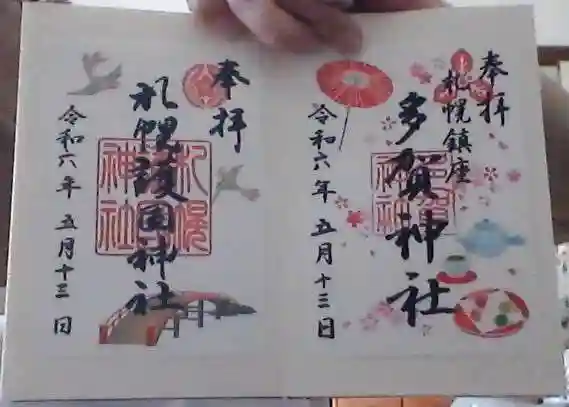 奉拝
札幌鎮座
多賀神社
令和六年 五月十三日
奉拝
札幌護国神社
令和六年 五月十三日
札幌
神社